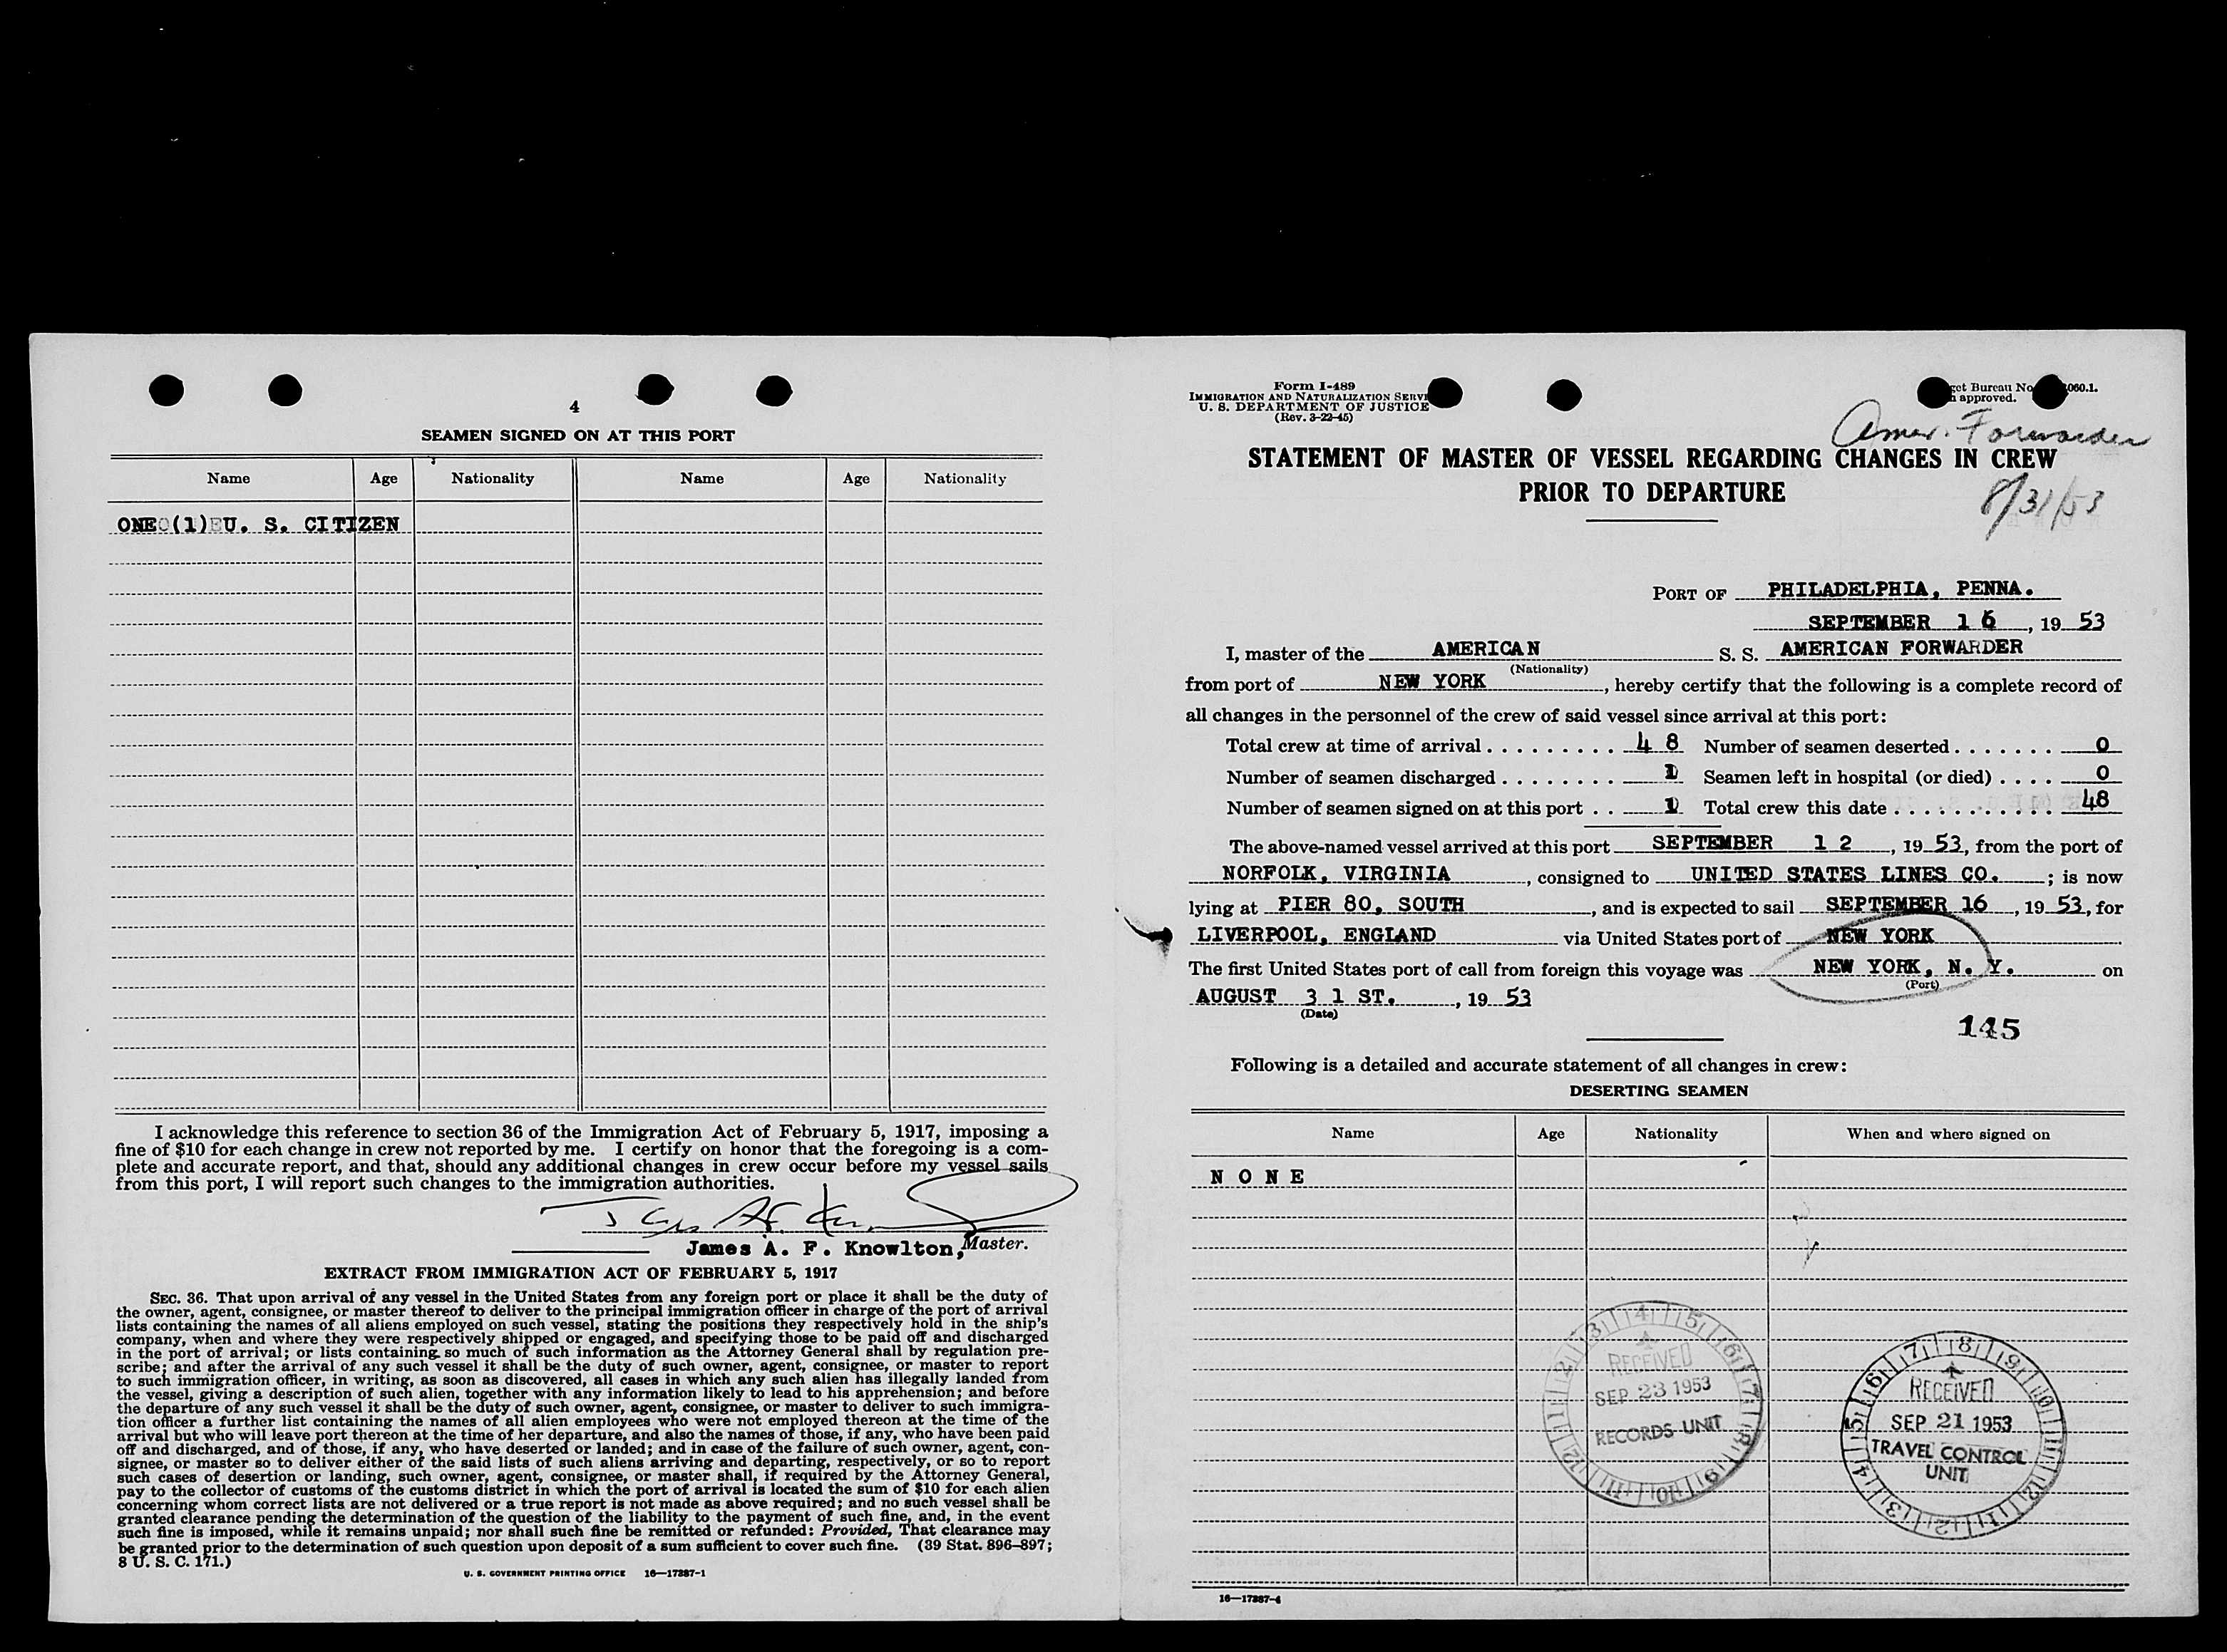 4
SEAMEN SIGNED ON AT THIS PORT
Name Age Nationality Name Age Nationality
ONE (1) U. S. CITIZEN
I acknowledge this reference to section 36 of the Immigration Act of February 5, 1917, imposing a
fine of $10 for each change in crew not reported by me. I certify on honor that the foregoing is a com-
plete and accurate report, and that, should any additional changes in crew occur before my vessel sails
from this port, I will report such changes to the immigration authorities.
James A. F. Knowlton, Master.
EXTRACT FROM IMMIGRATION ACT OF FEBRUARY 5, 1917
SEC. 36. That upon arrival of any vessel in the United States from any foreign port or place it shall be the duty of
the owner, agent, consignee, or master thereof to deliver to the principal immigration officer in charge of the port of arrival
lists containing the names of all aliens employed on such vessel, stating the positions they respectively hold in the ship's
company, when and where they were respectively shipped or engaged, and specifying those to be paid off and discharged
in the port of arrival; or lists containing so much of such information as the Attorney General shall by regulation pre-
scribe; and after the arrival of any such vessel it shall be the duty of such owner, agent, consignee, or master to report
to such immigration officer, in writing, as soon as discovered, all cases in which any such alien has illegally landed from
the vessel, giving a description of such alien, together with any information likely to lead to his apprehension; and before
the departure of any such vessel it shall be the duty of such owner, agent, consignee, or master to deliver to such immigra-
tion officer a further list containing the names of all alien employees who were not employed thereon at the time of the
arrival but who will leave port thereon at the time of her departure, and also the names of those, if any, who have been paid
off and discharged, and of those, if any, who have deserted or landed; and in case of the failure of such owner, agent, con-
signee, or master so to deliver either of the said lists of such aliens arriving and departing, respectively, or so to report
such cases of desertion or landing, such owner, agent, consignee, or master shall, if required by the Attorney General,
pay to the collector of customs of the customs district in which the port of arrival is located the sum of $10 for each alien
concerning whom correct lists are not delivered or a true report is not made as above required; and no such vessel shall be
granted clearance pending the determination of the question of the liability to the payment of such fine, and, in the event
such fine is imposed, while it remains unpaid; nor shall such fine be remitted or refunded: Provided, That clearance may
be granted prior to the determination of such question upon deposit of a sum sufficient to cover such fine. (39 Stat. 896–897;
8 U. S. C. 171.)
U. S. GOVERNMENT PRINTING OFFICE 16—17387-1
Form I-489
IMMIGRATION AND NATURALIZATION SERVI
U. S. DEPARTMENT OF JUSTICE
(Rev. 3-22-45)
get Bureau No. 060.1.
approved.
Amer. Forwarder
STATEMENT OF MASTER OF VESSEL REGARDING CHANGES IN CREW
PRIOR TO DEPARTURE
8/31/53
PORT OF PHILADELPHIA, PENNA.
SEPTEMBER 16, 19 53
I, master of the AMERICAN S. S. AMERICAN FORWARDER
(Nationality)
from port of NEW YORK, hereby certify that the following is a complete record of
all changes in the personnel of the crew of said vessel since arrival at this port:
Total crew at time of arrival . . . . . . . . . 4 8 Number of seamen deserted . . . . . . . 0
Number of seamen discharged . . . . . . . . 1 Seamen left in hospital (or died) . . . . 0
Number of seamen signed on at this port . . 1 Total crew this date . . . . . . . . . . . 48
The above-named vessel arrived at this port SEPTEMBER 1 2, 19 53, from the port of
NORFOLK, VIRGINIA, consigned to UNITED STATES LINES CO. ; is now
lying at PIER 80, SOUTH, and is expected to sail SEPTEMBER 16, 19 53, for
LIVERPOOL, ENGLAND via United States port of NEW YORK.
The first United States port of call from foreign this voyage was NEW YORK, N. Y. on
(Port)
AUGUST 3 1 ST., 19 53
(Date)
145
Following is a detailed and accurate statement of all changes in crew:
DESERTING SEAMEN
Name Age Nationality When and where signed on
N O N E
RECEIVED
SEP 23 1953
RECORDS UNIT
1 2 3 4 5 6 7 8 9 10 11 12
RECEIVED
SEP 21 1953
TRAVEL CONTROL
UNIT
1 2 3 4 5 6 7 8 9 10 11 12
16—17387-4